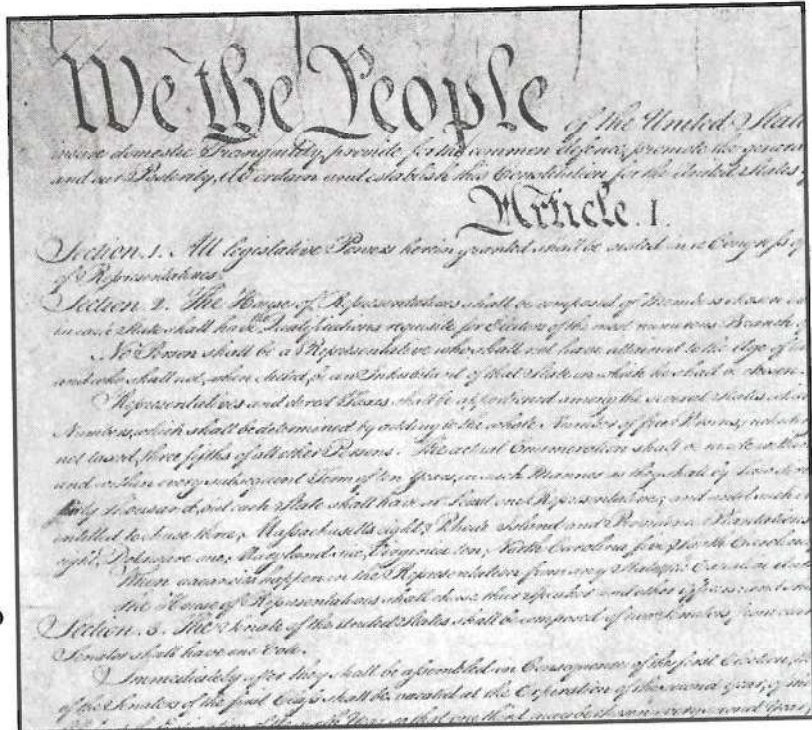 We the People of the United State
insure domestic Tranquility, provide for the common defence, promote the genera
and our Posterity, do ordain and establish this Constitution for the United States
Article. I.
Section. 1. All legislative Powers herein granted shall be vested in a Congress of
of Representatives.
Section. 2. The House of Representatives shall be composed of Members chosen
in each State shall have the Qualifications requisite for Electors of the most numerous Branch
No Person shall be a Representative who shall not have attained to the Age of
and who shall not, when elected, be an Inhabitant of that State in which he shall be chosen.
Representatives and direct Taxes shall be apportioned among the several States
Numbers, which shall be determined by adding to the whole Number of free Persons,
not taxed, three fifths of all other Persons. The actual Enumeration shall be made
and within every subsequent Term of ten Years, in such Manner as they shall by
thirty Thousand, but each State shall have at Least one Representative; and until such
entitled to chuse three, Massachusetts eight, Rhode Island and Providence Plantations
eight, Delaware one, Maryland six, Virginia ten, North Carolina five, South Carolina
When vacancies happen in the Representation from any State, the Executive
The House of Representatives shall chuse their Speaker and other Officers; and
Section. 3. The Senate of the United States shall be composed of two Senators from
Senator shall have one Vote.
Immediately after they shall be assembled in Consequence of the first Election,
of the Senators of the first Class shall be vacated at the Expiration of the second Year, of
that one third may be chosen every second Year;